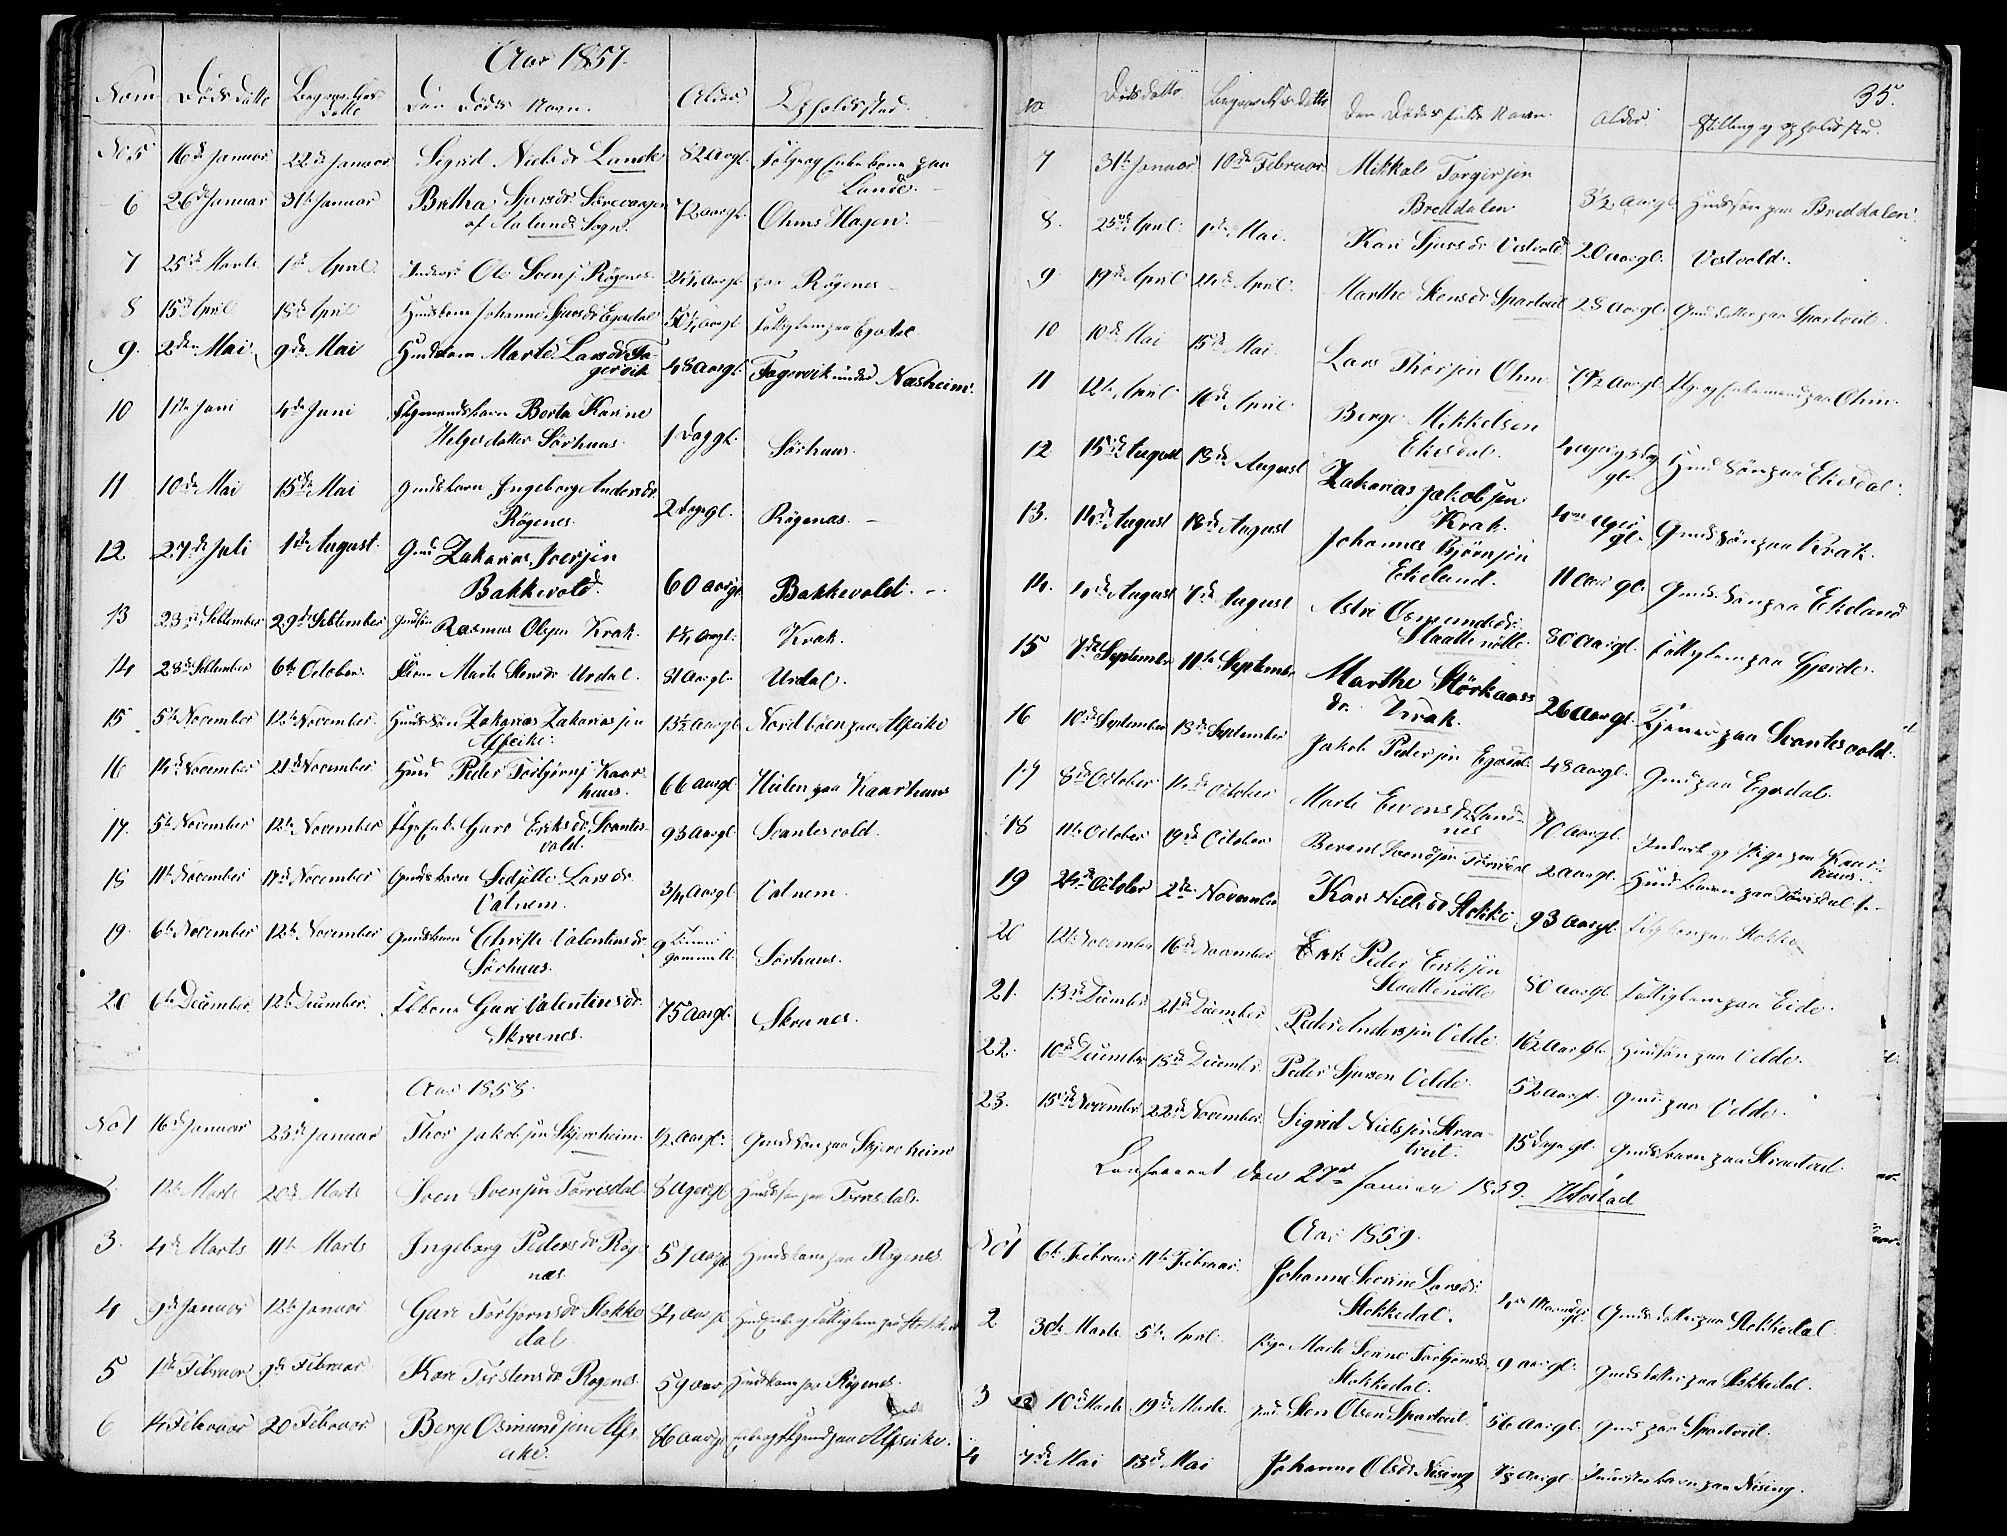 Aar 1857.
Num Døds datto Begravelses datto Den Dødes Navn. Alder. Opholdssted.
No 5 16de Januar 22de Januar Sigrid Nielsdr Lunde 82 aargl. paa Lunde.
6 26de Januar 31te Januar Bertha Sjursdr af Aalunds Sogn. 72 aargl. Ohms Hagen.
7 25de Marts 1ste April Ole Svensj Røgenes 2¼ aargl. paa Røgenes
8 15de April 18de April Huuskone Johanne Sjursdr Egesdal 50½ aargl. Fattiglem paa Egesdal
9. 2den Mai 9de Mai Huuskone Marte Larsdr Fagervik 48 aargl. Fagervik under Næsheim.
10 1ste Juni 4de Juni Berta Karine Helgesdatter Sørhuus. 1 Dag gl. Sørhuus.
11 10de Mai 15de Mai Gmdsbarn Ingeborg Andersdr Røgenes. 2 Dage gl. Røgenes.
12 27de Juli 1ste August. Gmd Zakarias Iversjen Bakkevold. 60 aargl. Bakkevold.
13 23de Sebtember 29de Sebtember Rasmus Olsjen Krak. 1¼ aargl. Krak.
14 28de Sebtember 6te October. Marte Stensdr Urdal. 81 aargl. Urdal.
15 5te November 12te November. Huussøn Zakarias Zakariasjen Alfseike. 13½ aargl. Nordbøen paa Alfseike
16 14de November 21de November Huusm Peder Torbjørnsj Kaarhuus. 66 aargl. Hielen paa Kaarhuus
17. 5te November 12te November Guro Eriksdr Svantesvold. 93 aargl. Svantesvold.
18 11te November 17de November Gmdsbarn Larsdr Vatnem. ¾ aargl. Vatnem.
19. 6te November 12te November Gmdsbarn Christi Valentinsdr Sørhuus. 9 Timer gammelt. Sørhuus.
20 6te December 12te December. Guri Valentinsdr Skrunes. 75 aargl. Skrunes.
Aar 1858.
No 1 16de Januar 23de Januar Thor Jakobsjen Skjerrheim. ½ aargl. Gmdssøn paa Skjerrheim
12te Marts 20de Marts Sven Svensjen Tørrisdal 8 Uger gl. Huussøn paa Tørrisdal.
3. 4de Marts 11te Marts Ingeborg Pedersdr Røgenæs 51 aargl. Huuskone paa Røgenes
4 9de Januar 12te Januar Guri Torbjørnsdr Stokkedal 84 aargl. Fattiglem paa Stokke
5 1ste Februar 9de Februar Kari Torstensdr Røgenes 59 aar Huuskone paa Røgenes.
6 14 Februar 20 Februar Berge Osmundsjen Alfseike. 86 aargl. paa Alfseike.
35.
No Døds datto Begravelses datto Den Dødes fulde Navn. Alder. Stilling og opholdssted.
7 31te Januar 10de Februar Mikkal Torgersjen Breddalen 3½ aargl. Huussøn paa Breddalen.
8. 25de April 1ste Mai. Kari Sjursdr Vestvold 20 aargl. Vestvold.
9 19de April 24de April. Marthe Stensdr Spartveit 28 aargl. Gmdsdatter paa Spartveit.
10 10de Mai 15de Mai. Lars Thorsjen Ohm. 79½ aargl. Enkemand paa Ohm.
11 12te April. 16de April. Berge Mikkelsen Ekesdal. 4 uger 3 dg gl. Huussøn paa Ekesdal.
12 15de August 18de August Zakarias Jakobsjen Krak. 4re Uger gl. Gmdssøn paa Krak.
13. 14de August 18de August Johannes Bjørnsjen Ekeland. 11 aar gl. Gmdssøn paa Ekeland
14. 4de August 7de August Astri Osmundsdr Slaattenølle. 80 aargl. Fattiglem paa Gjerde.
15 7de September 11te September Marthe Størkaasdr Krak. 26 aargl. Tjener paa Svantesvold.
16 10de September 18de September Jakob Pedersjen Egesdal 48 aargl. Gmd paa Egesdal.
17 8de October 14de October Marte Evensdr Landnes 70 aargl. Pige paa Kaarhuus.
18 11te October 19de October Berent Svendsjen Tørrisdal 2 aargl. Huusbarn paa Tørrisdal
19 24de October 2den November Kari Nielsdr Stokke 93 aargl. paa Stokke
20 12te November 16de November Enk Peder Eriksjen Slaattenølle 80 aargl. Fattiglem paa Eide.
21. 13de December 21de December Peder Andersjen Odde. 16½ aargl. Huussøn paa Odde.
22. 10de December 18de December. Peder Sjursen Odde. 52 aargl. Gmd paa Odde.
23. 15de November 22de November. Sigrid Nielsjen Straatveit. 15 Dage gl. Gmdsbarn paa Straatveit
Confereret den 27de Januar 1859.
Aar 1859.
No 1 6te Februar 11te Februar. Johanne Severine Larsdr Stokkedal. 4re Maaneder gl. Gmdsdatter paa Stokkedal
2 30te Marts 5te April. Pige Marte Serine Torbjørnsdr Stokkedal. 9 aargl. Gmdsdatter paa Stokkedal.
3 10de Marts 19de Marts. Gmd. Sten Olsen Spartveit. 56 aargl. Gmd paa Spartveit.
4 7de Mai 13de Mai Johanne Olsdr Nising aargl. paa Nising.